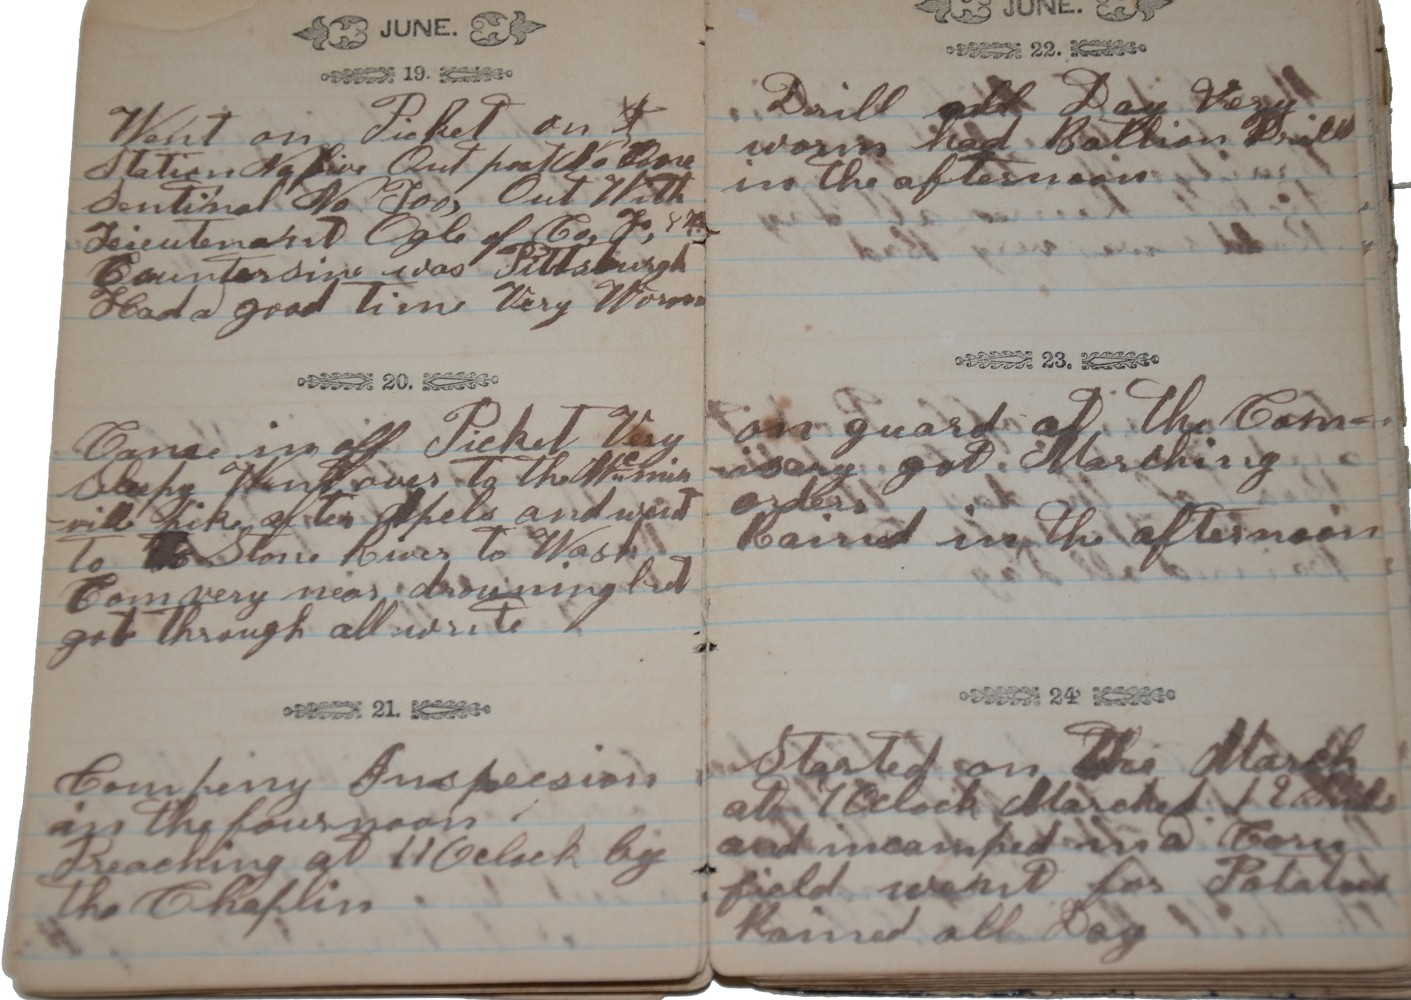 JUNE.
19.
Went on Picket on
Station No five Out post No One
Sentinal No Too, Out With
Lieutenant Ogle of Co, F,
Countersine was Pittsburgh
Had a good time Very Worm
20.
Came in off Picket Very
Sleepy Went over to the
ville Pike after Appels and went
to Stone River to Wash
Com very near drowning but
got through all write
21.
Compiny Inspecsion
in the fournoon
Preaching at 11 Oclock by
the Chaplin
JUNE.
22.
Drill all Day Very
worm had Battlion Drill
in the afternoon
23.
on guard at the Com-
isary got Marching
orders
Rained in the afternoon
24
Started on the March
at 7 Oclock Marched 12
and incamped in a Corn
field went for Potatoes
Rained all Day